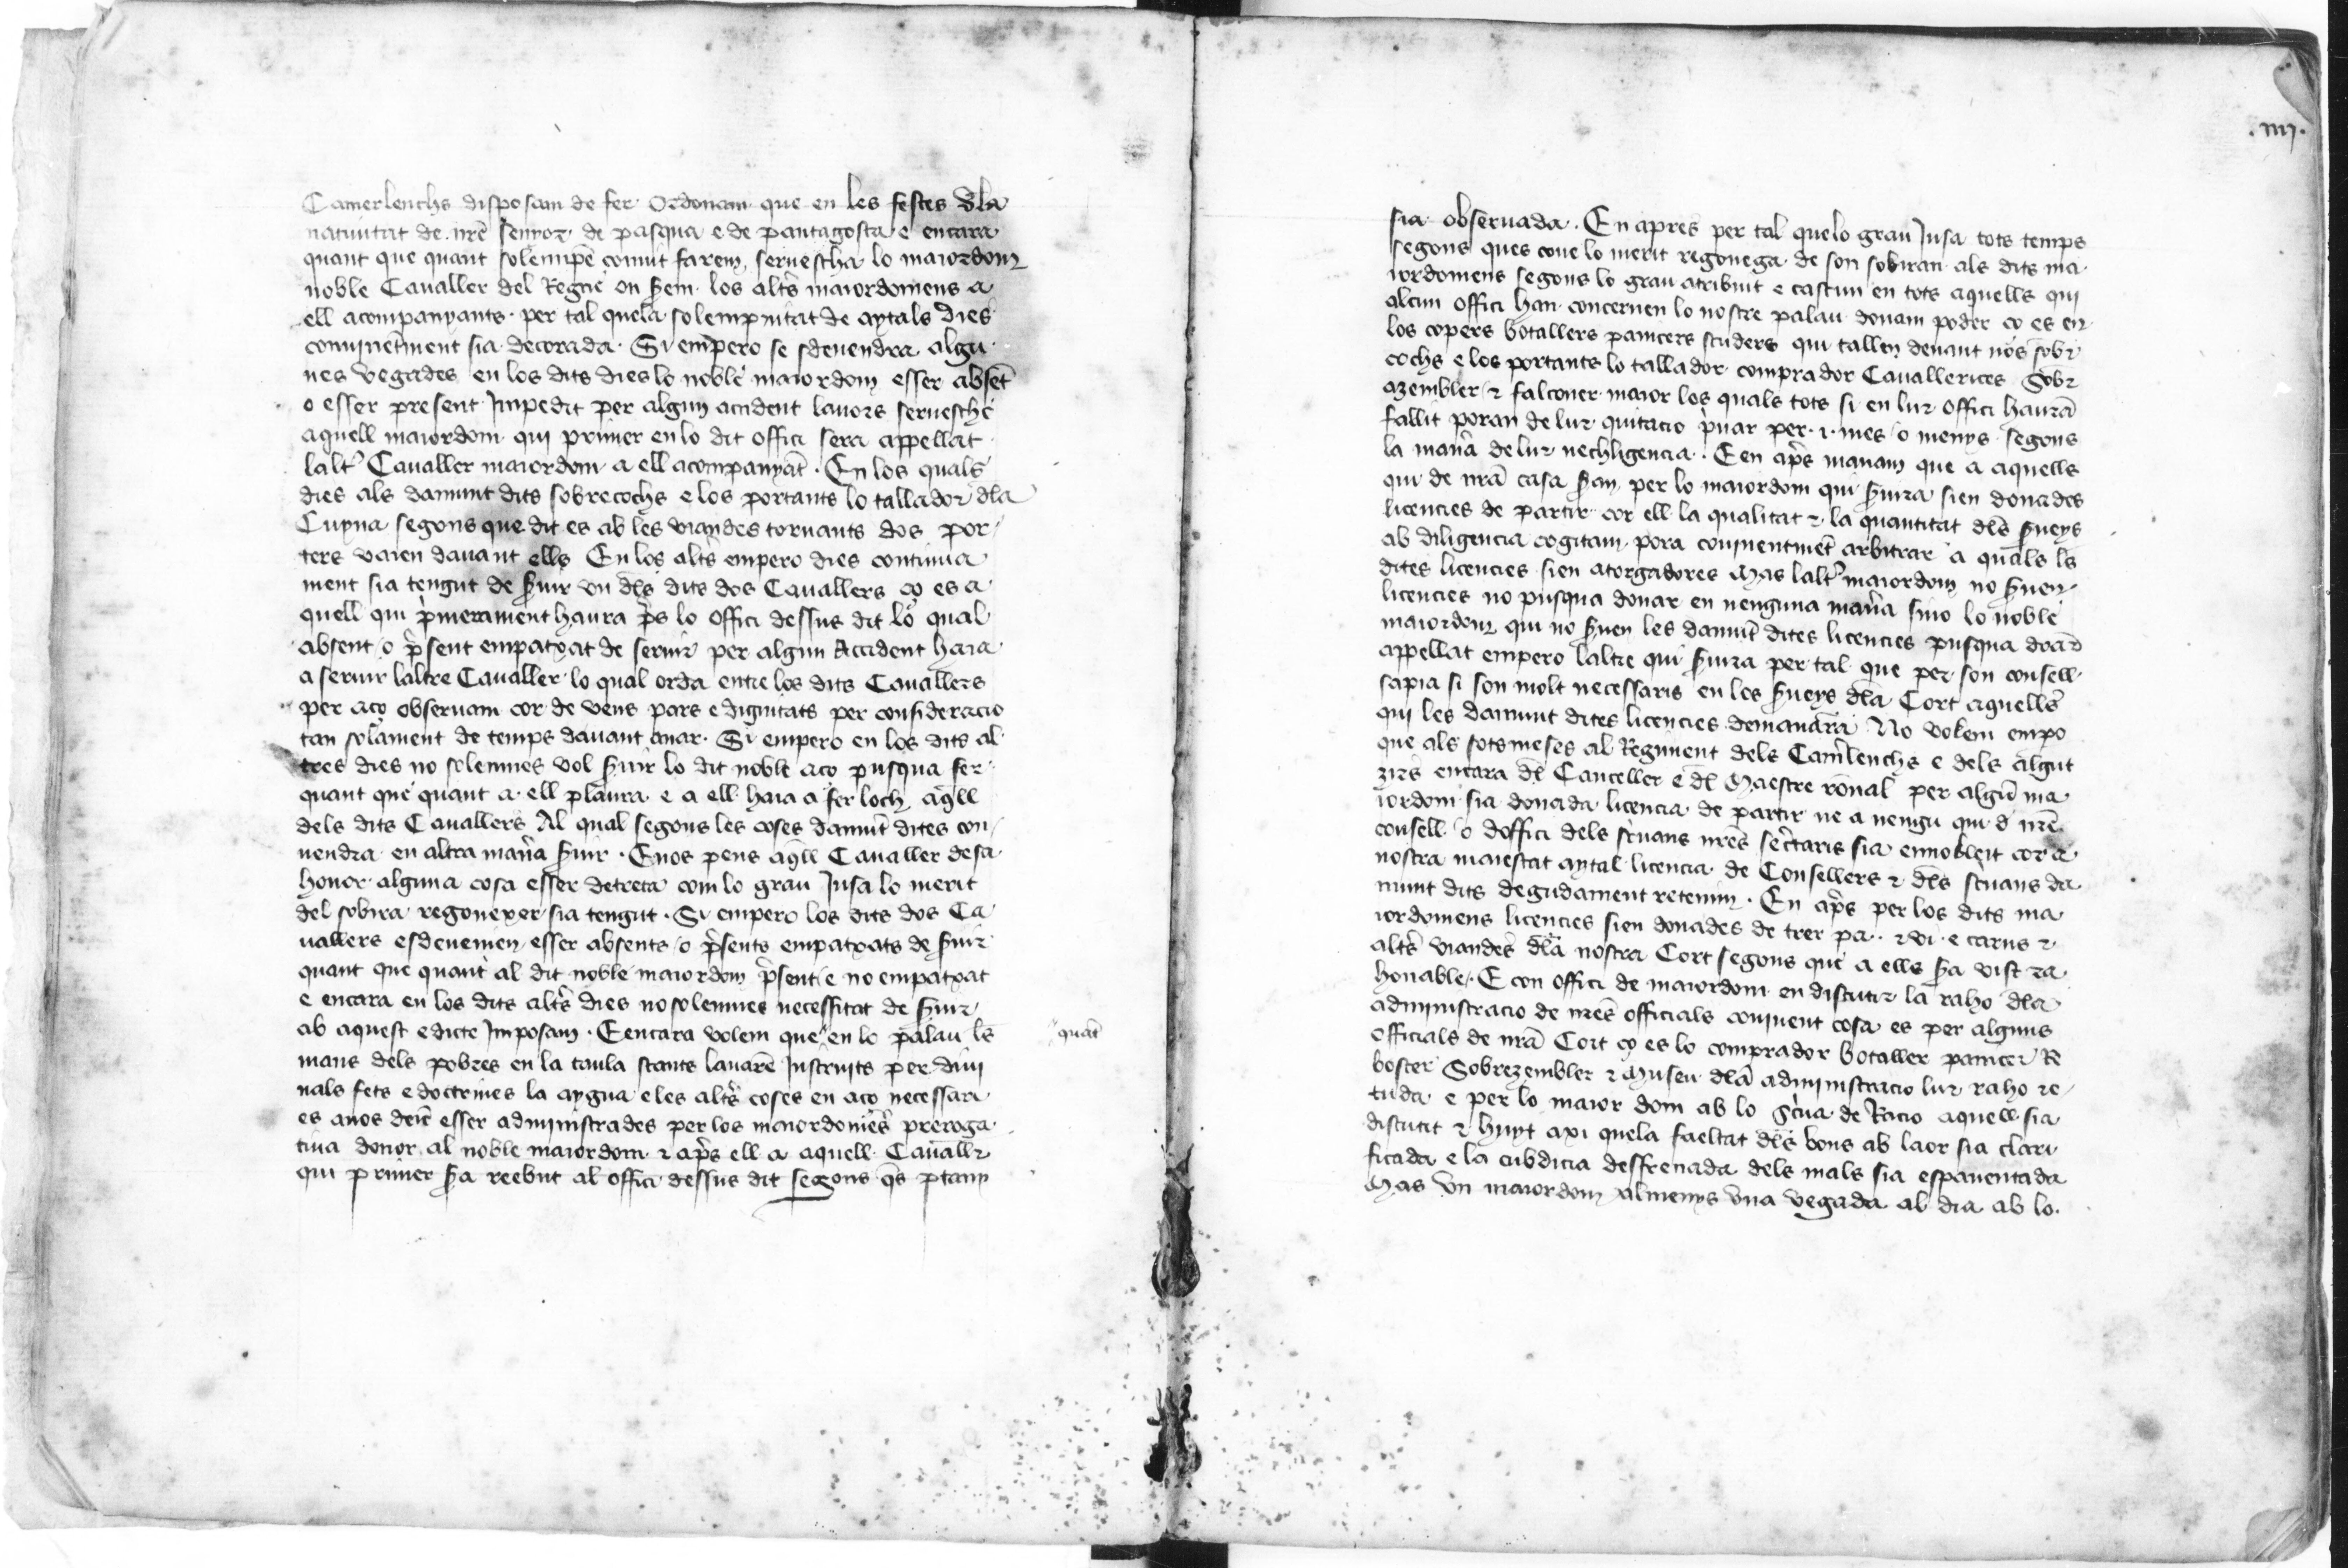 Camerlenchs disposam de fer Ordonam que en les festes dla
natiuitat de nrē senyor de pasqua e de pantagosta e encara
quant que quant solempē conuit farem seruescha lo maiordom
noble Caualler del Regne on ſem los altš maiordomens a
ell acompanyants per tal quela solempnitat de aytals dies
conuinētment sia decorada Si empero se sdeuendra algu
nes vegades en los dits dies lo noble maiordom esser absēt
o esser present Impedit per algun accident lauors seruesche
aquell maiordom qui primer en lo dit offici sera appellat
laltr̉ Caualler maiordom a ell acompanyāt . En los quals
dies als damunt dits sobrecochs e los portants lo tallador dla
Cuyna segons que dit es ab les viandes tornants dos por
ters vaien dauant ells En los altš empero dies continua
ment sia tengut de ſuir vn dls dits dos Cauallers ço es a
quell qui pimerament haura ps lo offici dessus dit lo qual
absent o psent empatxat de seruir per algun Accident haia
a seruir laltre Caualler lo qual orda entre los dits Cauallers
per aço obseruam cor de vens pars e dignitats per consideracio
tan solament de temps dauant anar . Si empero en los dits al
tres dies no solemnes vol ſuir lo dit noble aço pusqua fer
quant que quant a ell plaura e a ell haia a fer loch aq̄ll
dels dits Cauallers Al qual segons les coses damūt dites con
uendra en altra mana ſuir . Enos pens aq̄ll Caualler desa
honor alguna cosa esser detreta com lo grau Jusa lo merit
del sobira regonexer sia tengut . Si empero los dits dos Ca
uallers esdeuenien esser absents o psents empatxats de ſuir
quant que quant al dit noble maiordom psent e no empatxat
e encara en los dits altš dies no solemnes necessitat de ſuir
ab aquest edicte Imposam . Eencara volem que en lo palau ls
quāt
mans dels pobres en la taula stants lauarē Instruits per diui
nals fets e doctrines la aygua e les altš coses en aço necessari
es anos deiē esser administrades per los maiordomēs preroga
tiua donor al noble maiordom ⁊ aps ell a aquell Cauallr
qui primer ſa reebut al offici dessus dit segons q̄s ptany
.iiij.
sia obseruada . En apres per tal quelo grau Jusa tots temps
segons ques coue lo merit regonega de son sobiran als dits ma
iordomens segons lo grau atribuit e cascun en tots aquells qui
alcun offici han concernen lo nostre palau donam poder ço es en
los copers botallers panicers scuders qui tallen denant nos sobr
cochs e los portants lo tallador comprador Cauallerices Sobr
azembler ⁊ falconer maior los quals tots si en lur offici haurā
fallit poran de lur quitacio piuar per .i. mes o menys segons
la mana de lur nechligencia . E en aps manam que a aquells
qui de nrā casa ſan per lo maiordom qui ſuira sien donades
licencies de partir cor ell la qualitat ⁊ la quantitat dls ſueys
ab diligencia cogitam pora conuinentmēt arbitrar a quals ls
dites licencies sien atorgadores Mas laltr̉ maiordom no ſuen
licencies no pusqua donar en nenguna mana sino lo noble
maiordom qui no ſuen les damūt dites licencies pusqua donar
appellat empero laltre qui ſuira per tal que per son consell
sapia si son molt necessaris en los ſueys dla Cort aquells
qui les damunt dites licencies demanarā No volem empo
que als sotsmeses al Regiment dels Camlenchs e dels algut
zirs encara dl Canceller e dl Maestre rōnal per algū ma
iordom sia donada licencia de partir ne a nengu qui d nrē
consell o doffici dels scriuans nrēs sectaris sia ennobleit cor a
nostra maiestat aytal licencia de Consellers ⁊ dls scriuans da
munt dits degudament retenim . En aps per los dits ma
iordomens licencies sien donades de trer pa ⁊ vi e carns ⁊
altš viandes dla nostra Cort segons que a ells ſa vist ra
honable . E con offici de maiordom en discutir la raho dla
administracio de nrēs officials conuinent cosa es per alguns
officials de nrā Cort ço es lo comprador botaller panicer Re
boster Sobrezembler ⁊ Museu dla administracio lur raho re
tuda e per lo maior dom ab lo scriua de Racio aquell sia
discutit ⁊ huyt axi quela faeltat dls bons ab laor sia clari
ficada e la cubdicia desfrenada dels mals sia espauentada
Mas vn maiordom almenys vna vegada al dia ab lo